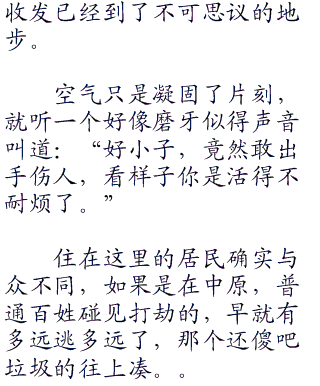 收发已经到了不可思议的地
步。
空气只是凝固了片刻，
就听一个好像磨牙似得声音
叫道：“好小子，竟然敢出
手伤人，看样子你是活得不
耐烦了。”
住在这里的居民确实与
众不同，如果是在中原，普
通百姓碰见打劫的，早就有
多远逃多远了，那个还傻吧
垃圾的往上凑。。